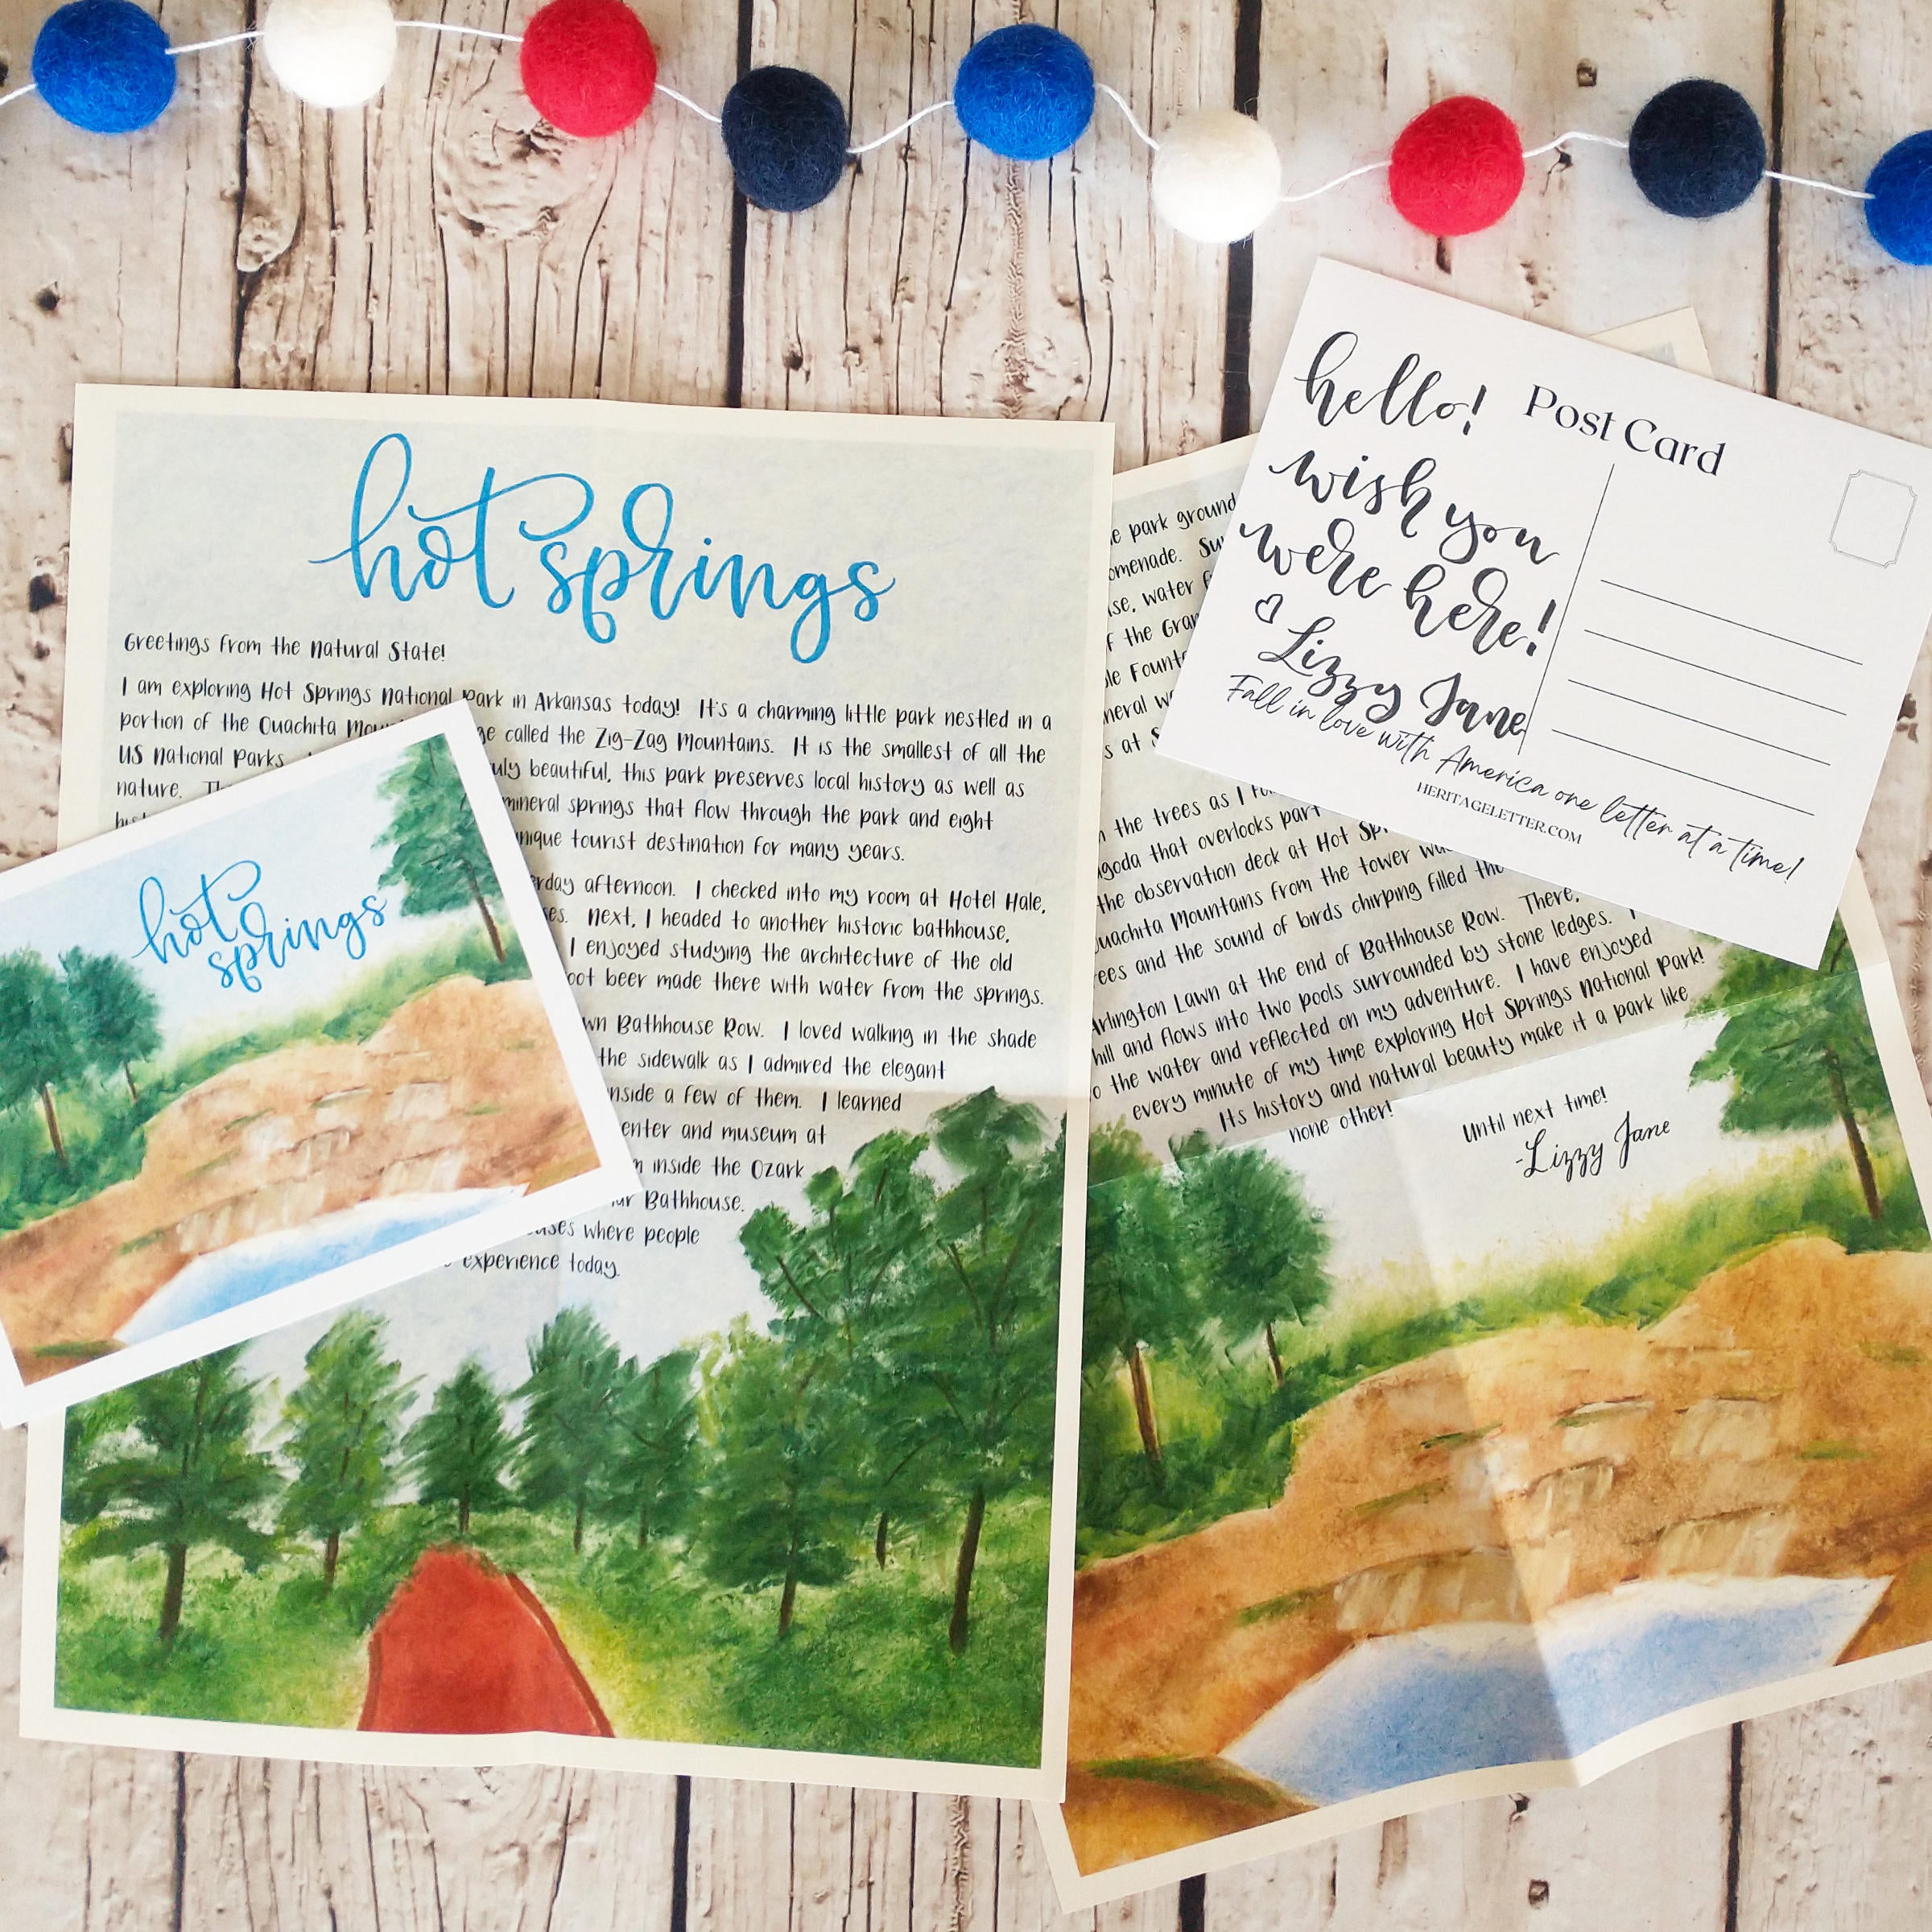 hot springs
Greetings from the Natural State!
I am exploring Hot Springs National Park in Arkansas today! It's a charming little park nestled in a
portion of the Ouachita called the Zig-Zag Mountains. It is the smallest of all the
US National Parks. beautiful, this park preserves local history as well as
nature. mineral springs that flow through the park and eight
tourist destination for many years.
afternoon. I checked into my room at Hotel Hale,
Next, I headed to another historic bathhouse,
I enjoyed studying the architecture of the old
beer made there with water from the springs.
Bathhouse Row. I loved walking in the shade
the sidewalk as I admired the elegant
inside a few of them. I learned
and museum at
inside the Ozark
Bathhouse.
where people
experience today.
hot
springs
park
water
the
at
the trees as I
that overlooks
the observation deck at Hot
Mountains from the tower
and the sound of birds chirping filled the
Arlington Lawn at the end of Bathhouse Row. There,
hill and flows into two pools surrounded by stone ledges.
the water and reflected on my adventure. I have enjoyed
every minute of my time exploring Hot Springs National Park!
Its history and natural beauty make it a park like
none other!
Until next time!
-Lizzy Jane
hello!
wish you
were here!
♡ Lizzy Jane
Post Card
Fall in love with America one letter at a time!
HERITAGELETTER.COM